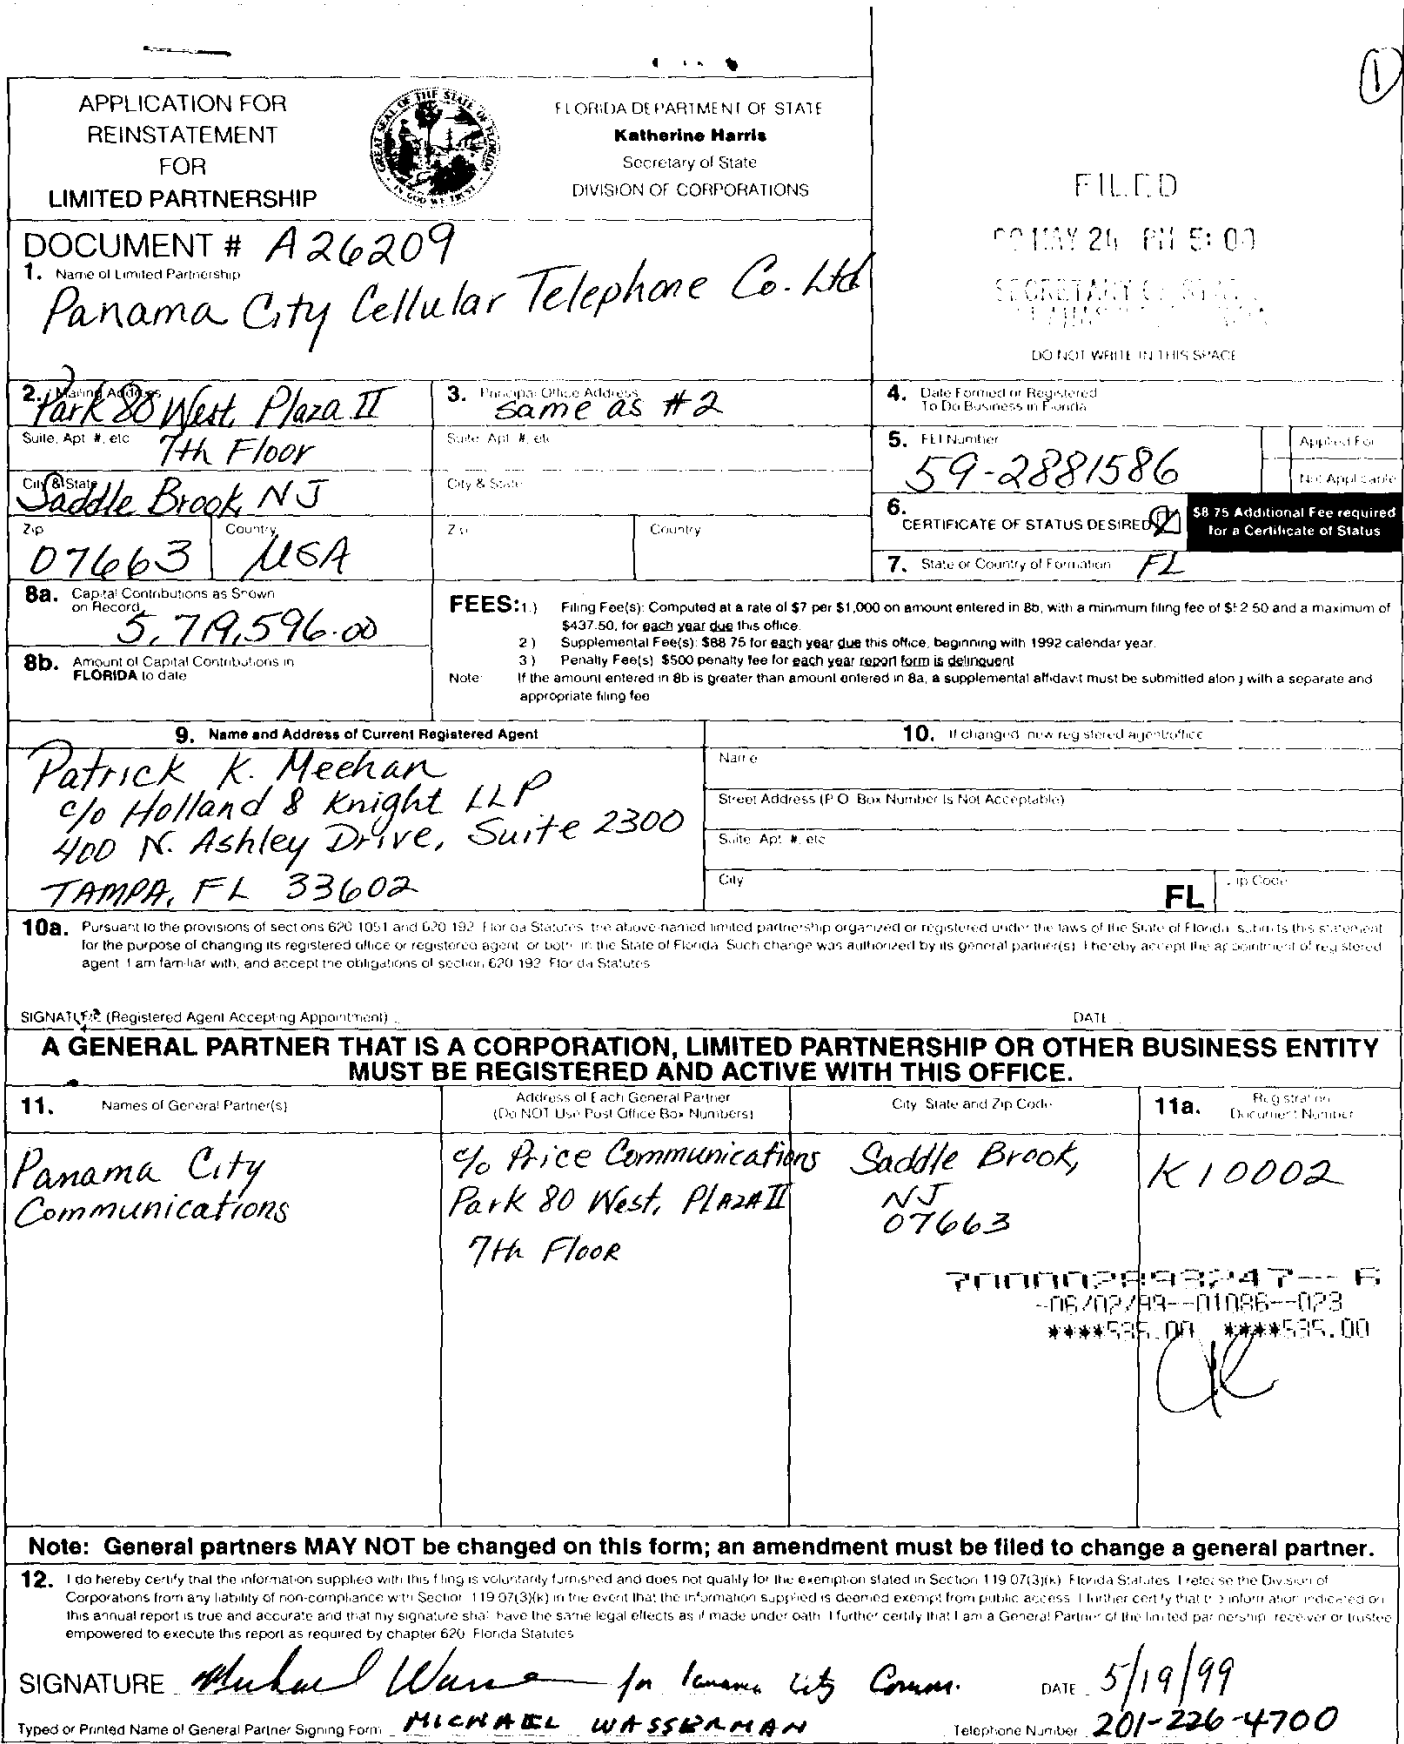 1
APPLICATION FOR
REINSTATEMENT
FOR
LIMITED PARTNERSHIP
FLORIDA DEPARTMENT OF STATE
Katherine Harris
Secretary of State
DIVISION OF CORPORATIONS
MAY 24 PM 5:00
SECRETARY OF
DO NOT WRITE IN THIS SPACE
DOCUMENT # A26209
1. Name of Limited Partnership
Panama City Cellular Telephone Co. Ltd
2. Mailing Address
Park 80 West, Plaza II
3. Principal Office Address
same as #2
4. Date Formed or Registered
To Do Business in Florida
Suite, Apt #, etc
7th Floor
Suite, Apt #, etc
5. FEI Number
59-2881586
Applied For
Not Applicable
City & State
Saddle Brook, NJ
City & State
6. CERTIFICATE OF STATUS DESIRED
$8 75 Additional Fee required
for a Certificate of Status
Zip
07663
Country
USA
Zip
Country
7. State or Country of Formation FL
8a. Capital Contributions as Shown
on Record
5,719,596.00
8b. Amount of Capital Contributions in
FLORIDA to date
FEES: 1.) Filing Fee(s): Computed at a rate of $7 per $1,000 on amount entered in 8b, with a minimum filing fee of $52 50 and a maximum of
$437.50, for each year due this office.
2 ) Supplemental Fee(s): $88 75 for each year due this office, beginning with 1992 calendar year.
3 ) Penalty Fee(s) $500 penalty fee for each year report form is delinquent
Note: If the amount entered in 8b is greater than amount entered in 8a, a supplemental affidavit must be submitted along with a separate and
appropriate filing fee
9. Name and Address of Current Registered Agent
Patrick K. Meehan
c/o Holland & Knight LLP
400 N. Ashley Drive, Suite 2300
TAMPA, FL 33602
10. If changed, new registered agent/office
Name
Street Address (P O Box Number Is Not Acceptable)
Suite, Apt #, etc
City
FL
Zip Code
10a. Pursuant to the provisions of sections 620 1051 and 620 192 Florida Statutes, the above-named limited partnership organized or registered under the laws of the State of Florida, submits this statement
for the purpose of changing its registered office or registered agent, or both, in the State of Florida. Such change was authorized by its general partner(s). I hereby accept the appointment of registered
agent. I am familiar with, and accept the obligations of section 620 192 Florida Statutes
SIGNATURE (Registered Agent Accepting Appointment)
DATE
A GENERAL PARTNER THAT IS A CORPORATION, LIMITED PARTNERSHIP OR OTHER BUSINESS ENTITY
MUST BE REGISTERED AND ACTIVE WITH THIS OFFICE.
11. Names of General Partner(s)
Address of Each General Partner
(Do NOT Use Post Office Box Numbers)
City, State and Zip Code
11a. Registration
Document Number
Panama City
Communications
c/o Price Communications
Park 80 West, PLAZA II
7th Floor
Saddle Brook,
NJ
07663
K10002
700002893247--6
-06/02/99--01086--023
****535.00 ****535.00
Note: General partners MAY NOT be changed on this form; an amendment must be filed to change a general partner.
12. I do hereby certify that the information supplied with this filing is voluntarily furnished and does not qualify for the exemption stated in Section 119 07(3)(k) Florida Statutes. I release the Division of
Corporations from any liability of non-compliance with Section 119 07(3)(k) in the event that the information supplied is deemed exempt from public access. I further certify that the information indicated on
this annual report is true and accurate and that my signature shall have the same legal effects as if made under oath. I further certify that I am a General Partner of the limited partnership, receiver or trustee
empowered to execute this report as required by chapter 620 Florida Statutes
SIGNATURE Michael Wass for Panama City Comm. DATE 5/19/99
Typed or Printed Name of General Partner Signing Form MICHAEL WASSERMAN Telephone Number 201-226-4700